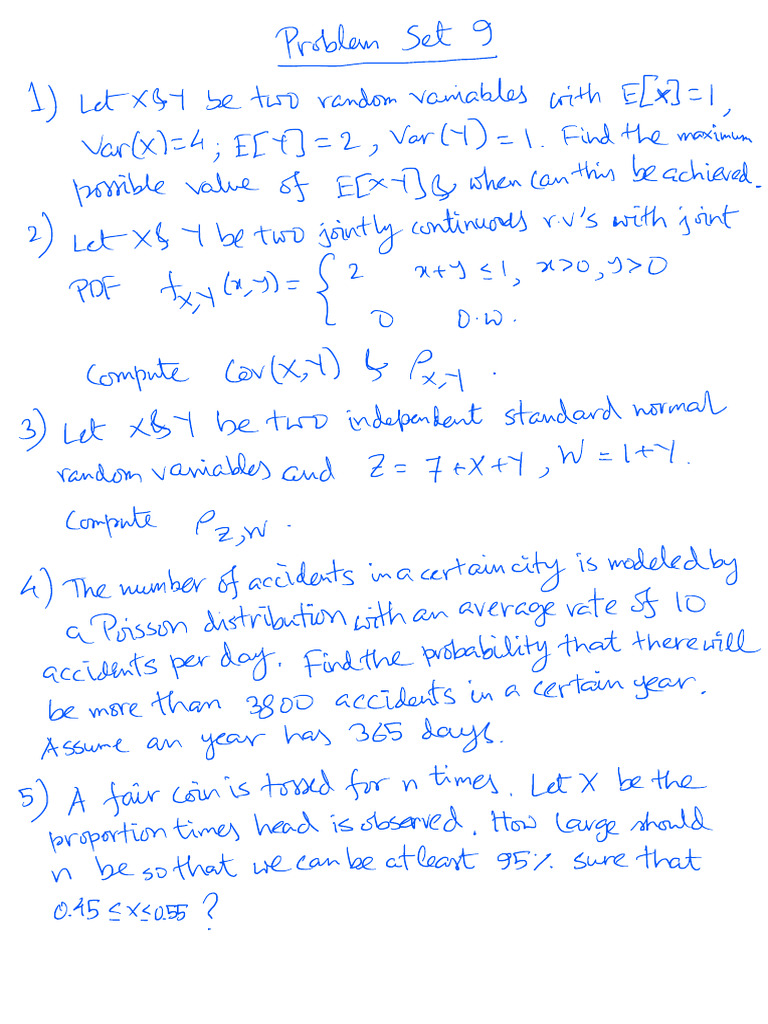 Problem Set 9
1) Let X & Y be two random variables with E[X]=1,
Var(X)=4; E[Y]=2, Var(Y)=1. Find the maximum
possible value of E[XY] & when can this be achieved.
2) Let X & Y be two jointly continuous r.v's with joint
PDF f_{X,Y}(x,y) = { 2 x+y ≤ 1, x>0, y>0
0 O.W.
Compute Cov(X,Y) & ρ_{X,Y}.
3) Let X & Y be two independent standard normal
random variables and Z = 7+X+Y, W = 1+Y.
Compute ρ_{Z,W}.
4) The number of accidents in a certain city is modeled by
a Poisson distribution with an average rate of 10
accidents per day. Find the probability that there will
be more than 3800 accidents in a certain year.
Assume an year has 365 days.
5) A fair coin is tossed for n times. Let X be the
proportion times head is observed. How large should
n be so that we can be atleast 95% sure that
0.45 ≤ X ≤ 0.55 ?